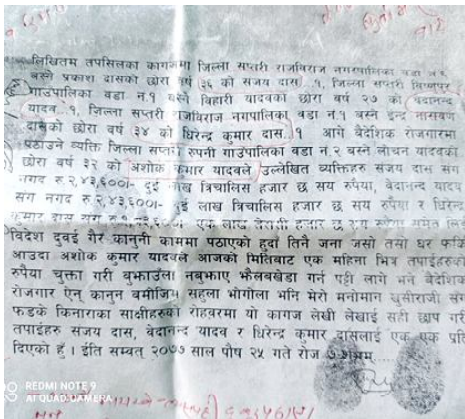 लिखितम तपसिलका कागजमा जिल्ला सप्तरी राजविराज नगरपालिका वडा नं.
बस्ने प्रकाश दासको छोरा वर्ष ३६ को संजय दास १, जिल्ला सप्तरी विष्णुपुर
गाउँपालिका वडा न.१ बस्ने विहारी यादवका छोरा वर्ष २७ को वेदानन्द
यादव १, जिल्ला सप्तरी राजविराज नगपालिका वडा न.१ बस्ने ईन्द्र नारायण
दासको छोरा वर्ष ३४ को धिरेन्द्र कुमार दास १ आगे बैदेशिक रोजगारमा
पठाउने व्यक्ति जिल्ला सप्तरी रुपनी गाउँपालिका वडा न.२ बस्ने लोचन यादवका
छोरा वर्ष ३२ को अशोक कुमार यादवले उल्लेखित व्यक्तिहरु संजय दास संग
नगद रु.२,४३,६००।- दुई लाख त्रिचालिस हजार छ सय रुपैया, वेदानन्द यादव
संग नगद रु.२,४३,६००।- दुई लाख त्रिचालिस हजार छ सय रुपैया र धिरेन्द्र
कुमार दास संग एक लाख हजार छ सय रुपैया समेत लिई
विदेश दुवई गैर कानुनी काममा पठाएको हुदा तिनै जना जसो तसो घर फर्कि
आउदा अशोक कुमार यादवले आजको मितिबाट एक महिना भित्र तपाईहरुको
रुपैया चुक्ता गरी बुझाउँला नबुझाए झैलबखेडा गर्न पट्टी लागे भने बैदेशिक
रोजगार ऐन् कानुन बमोजिम सहुला भोगौला भनि मेरो मनोमान खुसीराजी संग
फडके किनाराका साक्षीहरुको रोहवरमा यो कागज लेखी लेखाई सही छाप गरी
तपाईहरु संजय दास, वेदानन्द यादव र धिरेन्द्र कुमार दासलाई एक एक प्रति
दिएको छु । ईति सम्वत् २०७७ साल पौष २५ गते रोज ७ शुभम्
REDMI NOTE 9
AI QUAD CAMERA